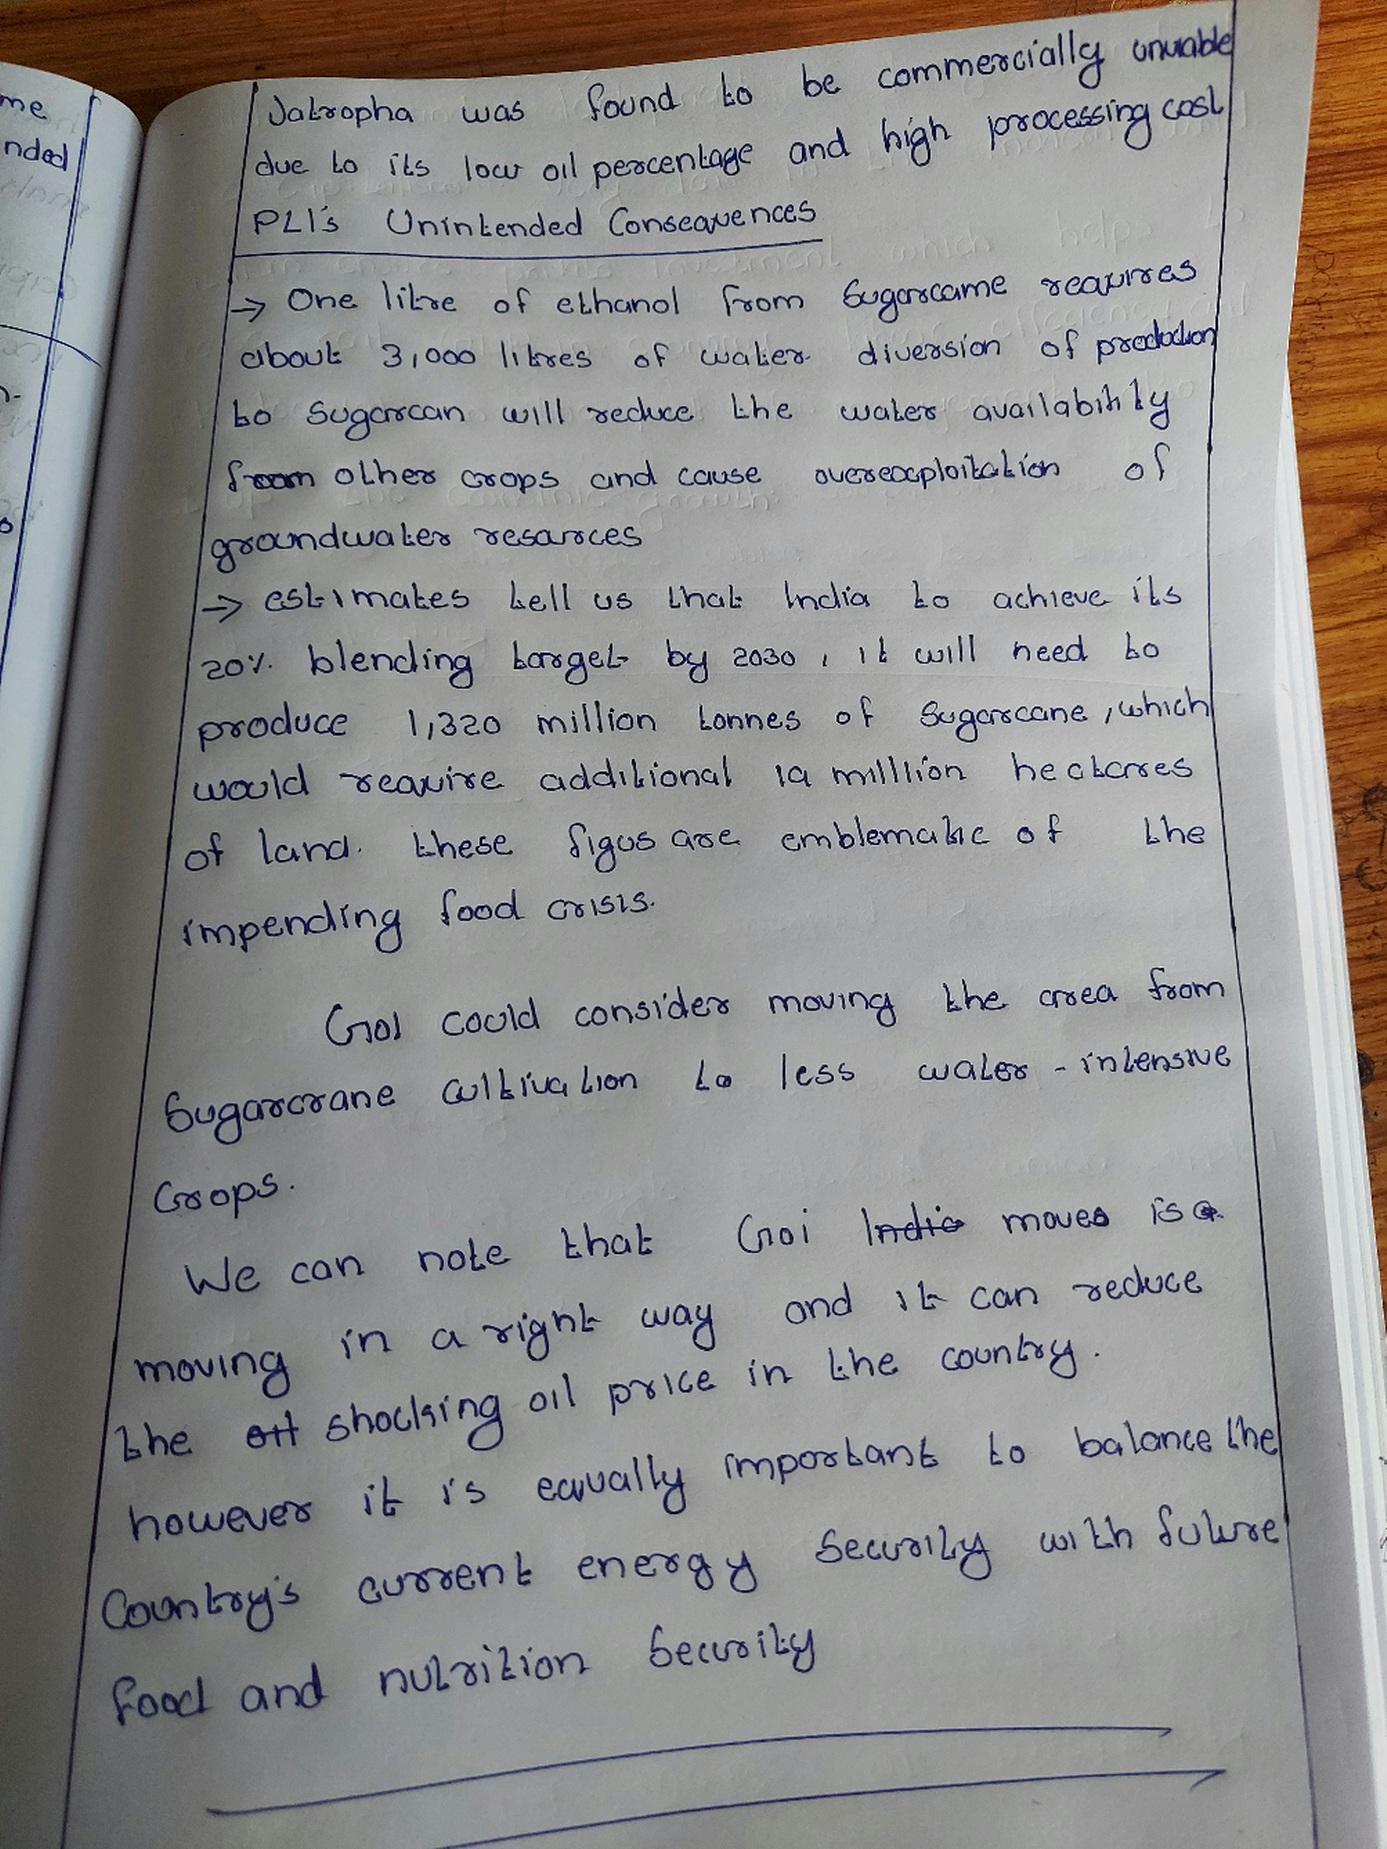 me
nded
Jatropha was found to be commercially unviable
due to its low oil percentage and high processing cost
PLI's Unintended Consequences
→ One litre of ethanol from Sugarcame requires
about 3,000 litres of water diversion of production
to Sugarcan will reduce the water availability
from other crops and cause overexploitation of
groundwater resources
→ estimates tell us that India to achieve its
20% blending target by 2030, it will need to
produce 1,320 million tonnes of Sugarcane, which
would require additional 19 milllion hectares
of land. these figus are emblematic of the
impending food crisis.
GoI could consider moving the area from
Sugarcrane cultivation to less water-intensive
Crops.
We can note that Goi moves is
moving in a right way and it can reduce
the shocking oil price in the country.
however it is equally important to balance the
Country's current energy Security with future
food and nutrition Security